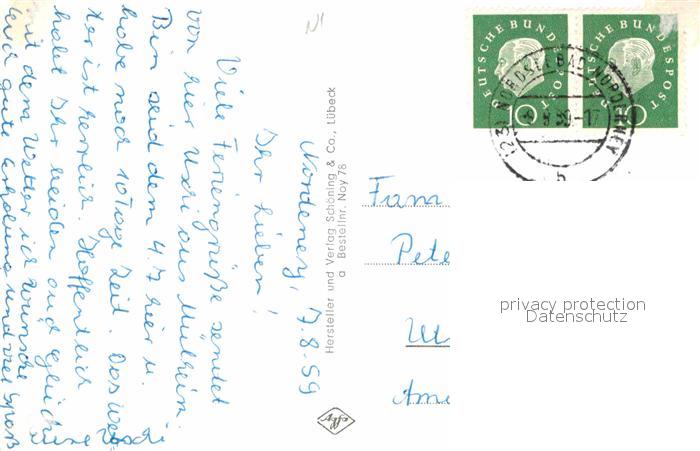 Norderney, 7.8.59
Ihr Lieben!
Viele Feriengrüße sendet
von hier Uschi aus Mülheim.
Bin seid dem 4.7 hier u.
habe noch 10 Tage Zeit. Das Wet
ter ist herrlich. Hoffentlich
habt Ihr beiden auch Glück
mit dem Wetter. ich wünsche
Euch gute Erholung und viel Spaß
Uschi
Hersteller und Verlag Schöning & Co., Lübeck
a Bestellnr. Noy 78
DEUTSCHE BUNDESPOST
DEUTSCHE BUNDESPOST
(23) NORDSEEBAD NORDERNEY
b
Fam
Pete
Ame
privacy protection
Datenschutz